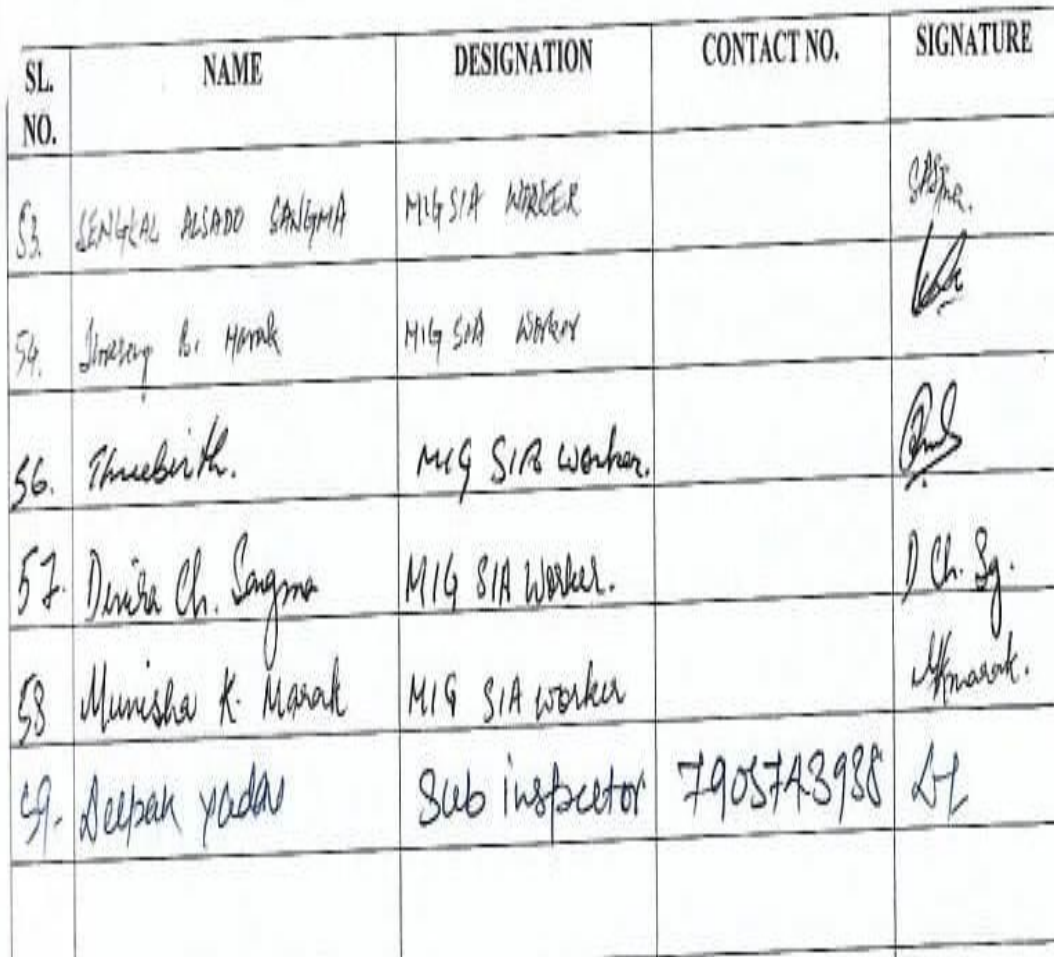 SL. NO. NAME DESIGNATION CONTACT NO. SIGNATURE
53. SENGKAL ALSADO SANGMA MIG SIA WORKER
54. B. Marak MIG SIA Worker
56. MIG SIA worker.
57. Ch. Sangma MIG SIA Worker. D Ch. Sg.
58 Munisha K. Marak MIG SIA worker MKmarak.
59. Deepak yadav Sub inspector 7905743938